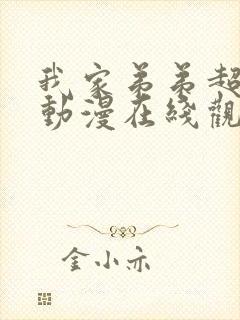 我家弟弟超
動漫在綫觀
金小亦